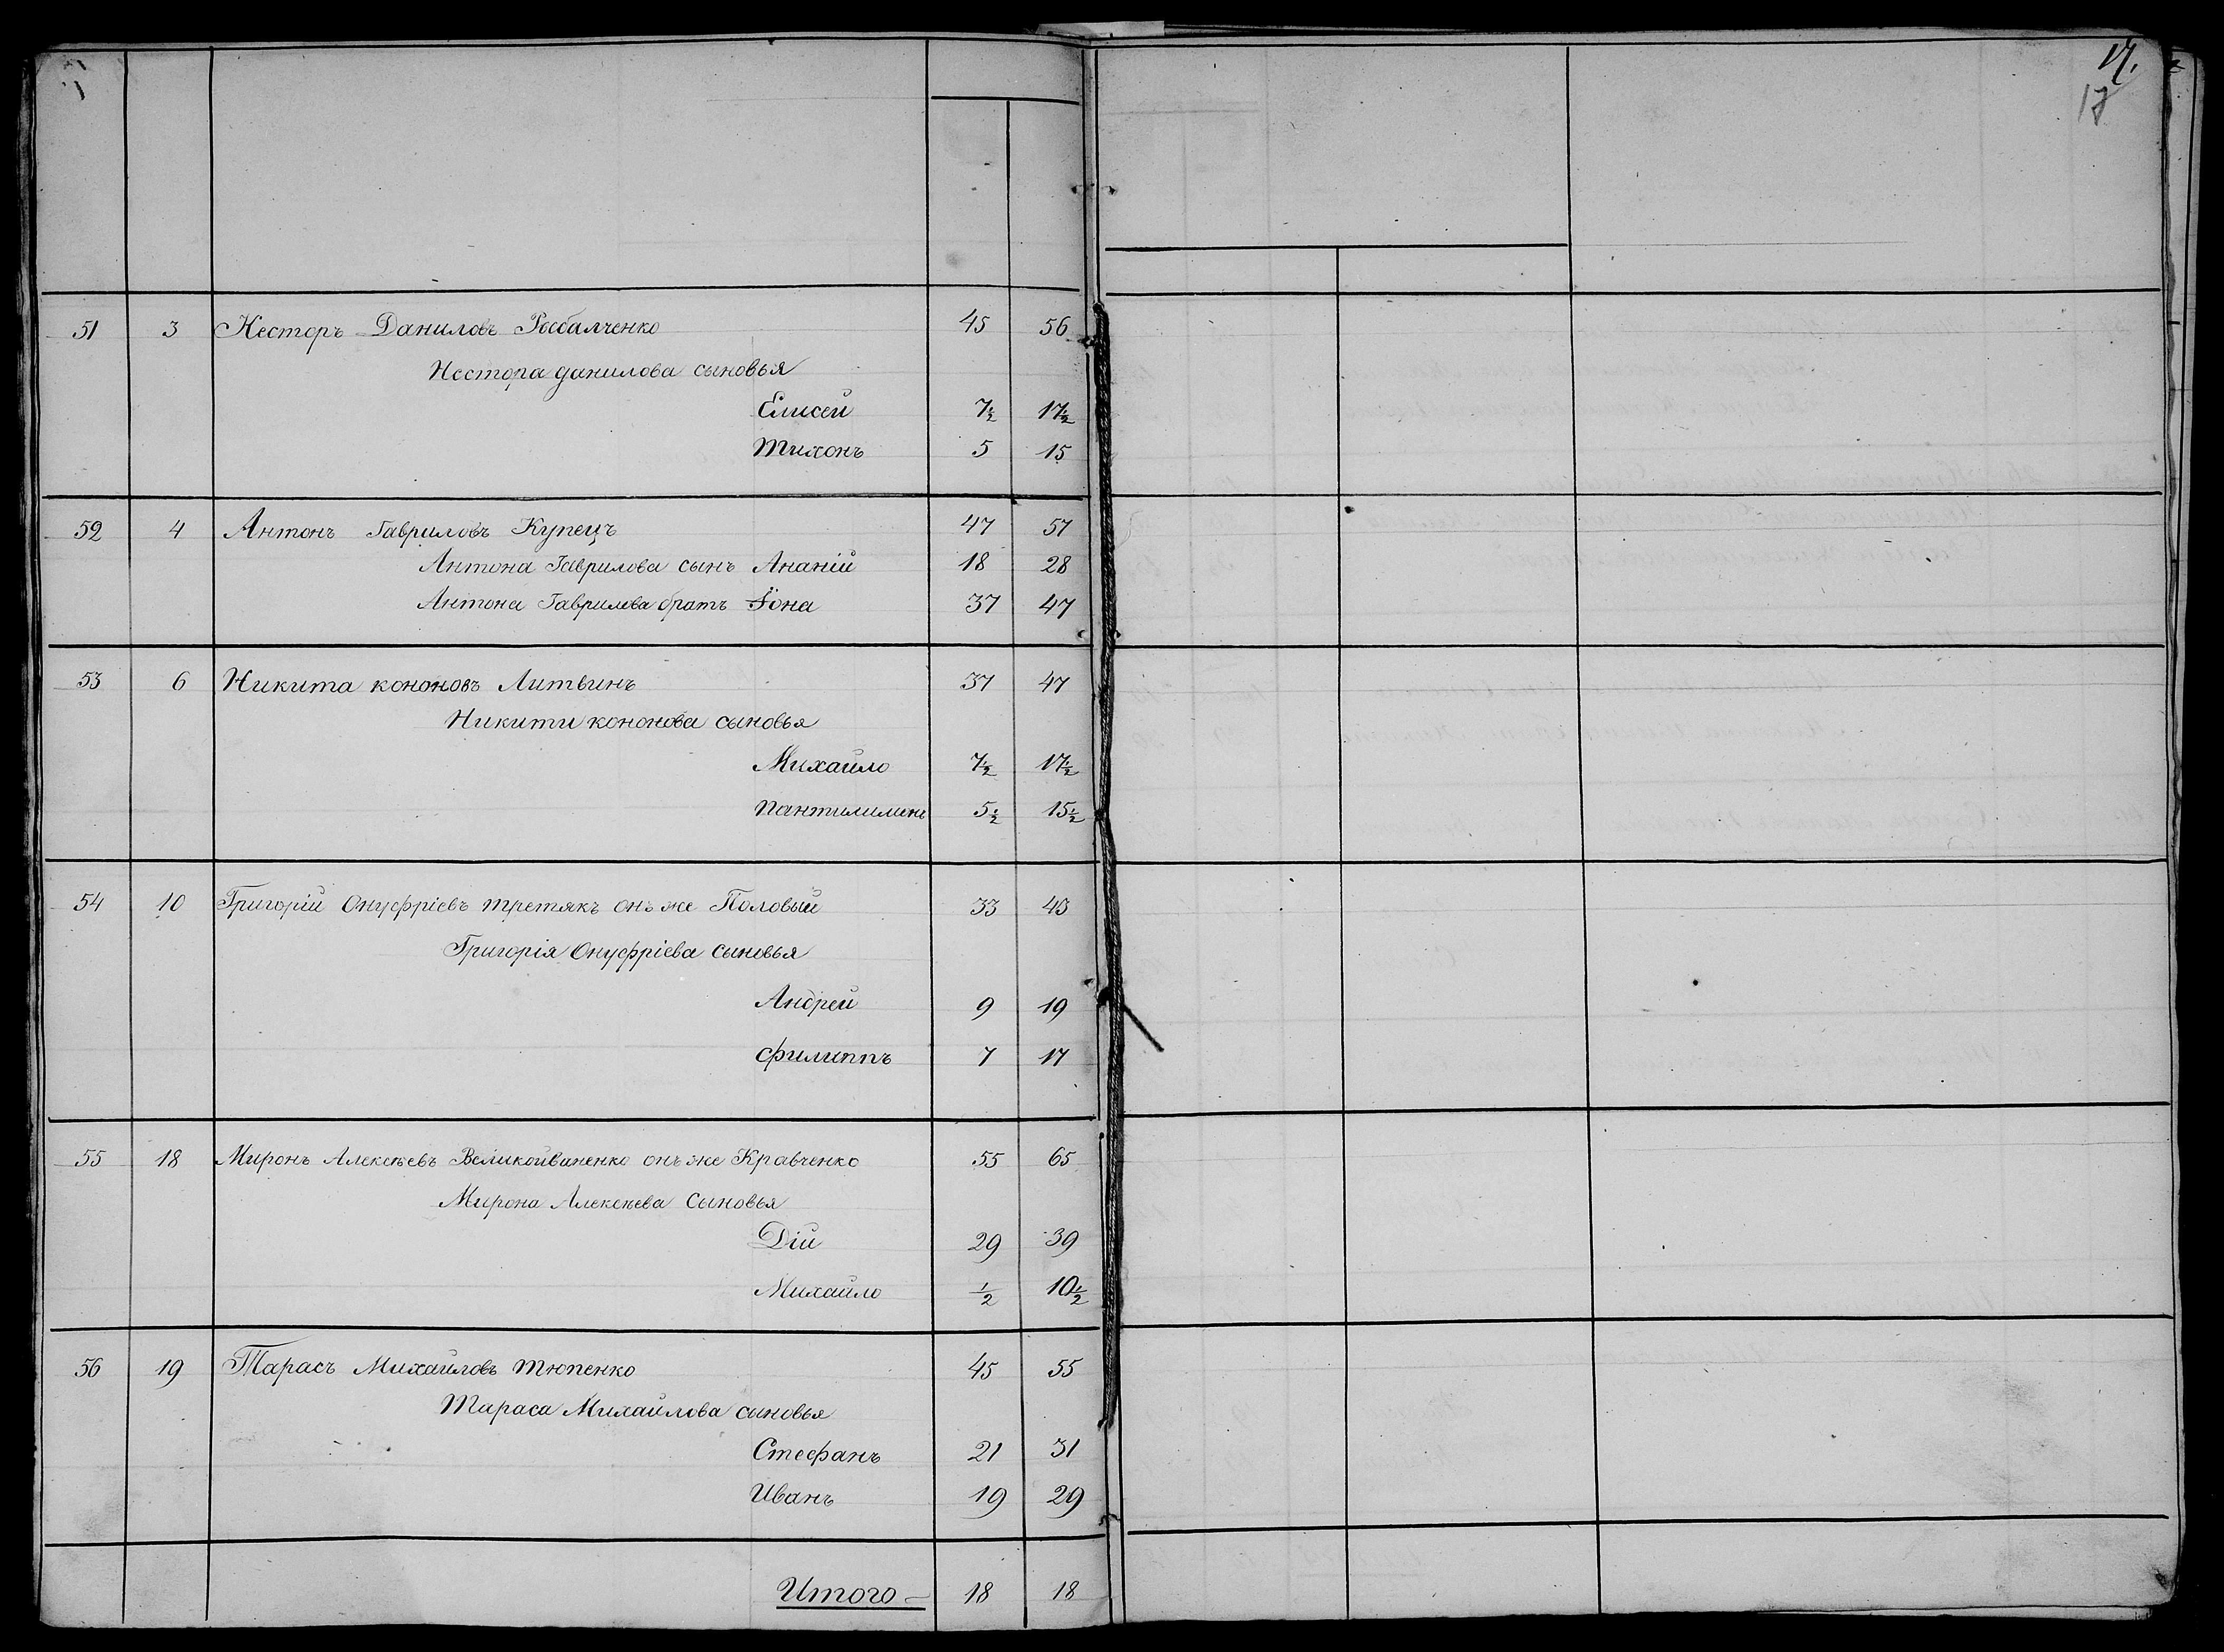 17.
18
51 3 Несторъ Даниловъ 45 56
Нестора данилова сыновья
Елисей 7½ 17½
Тихонъ 5 15
52 4 Антонъ Гавриловъ Купецъ 47 57
Антона Гаврилова сынъ Ананій 18 28
Антона Гаврилова братъ Іона 37 47
53 6 Никита кононовъ Литвинъ 37 47
Никити кононова сыновья
Михайло 7½ 17½
Пантилимонъ 5½ 15½
54 10 Григорій Онуфріевъ третякъ онъ же Половый 33 43
Григорія Онуфріева сыновья
Андрей 9 19
Филиппъ 7 17
55 18 Миронъ Алексѣевъ онъ же Кравченко 55 65
Мирона Алексѣева сыновья
Дій 29 39
Михайло ½ 10½
56 19 Тарасъ Михайловъ Тюпенко 45 55
Тараса Михайлова сыновья
Стефанъ 21 31
Иванъ 19 29
Итого – 18 18